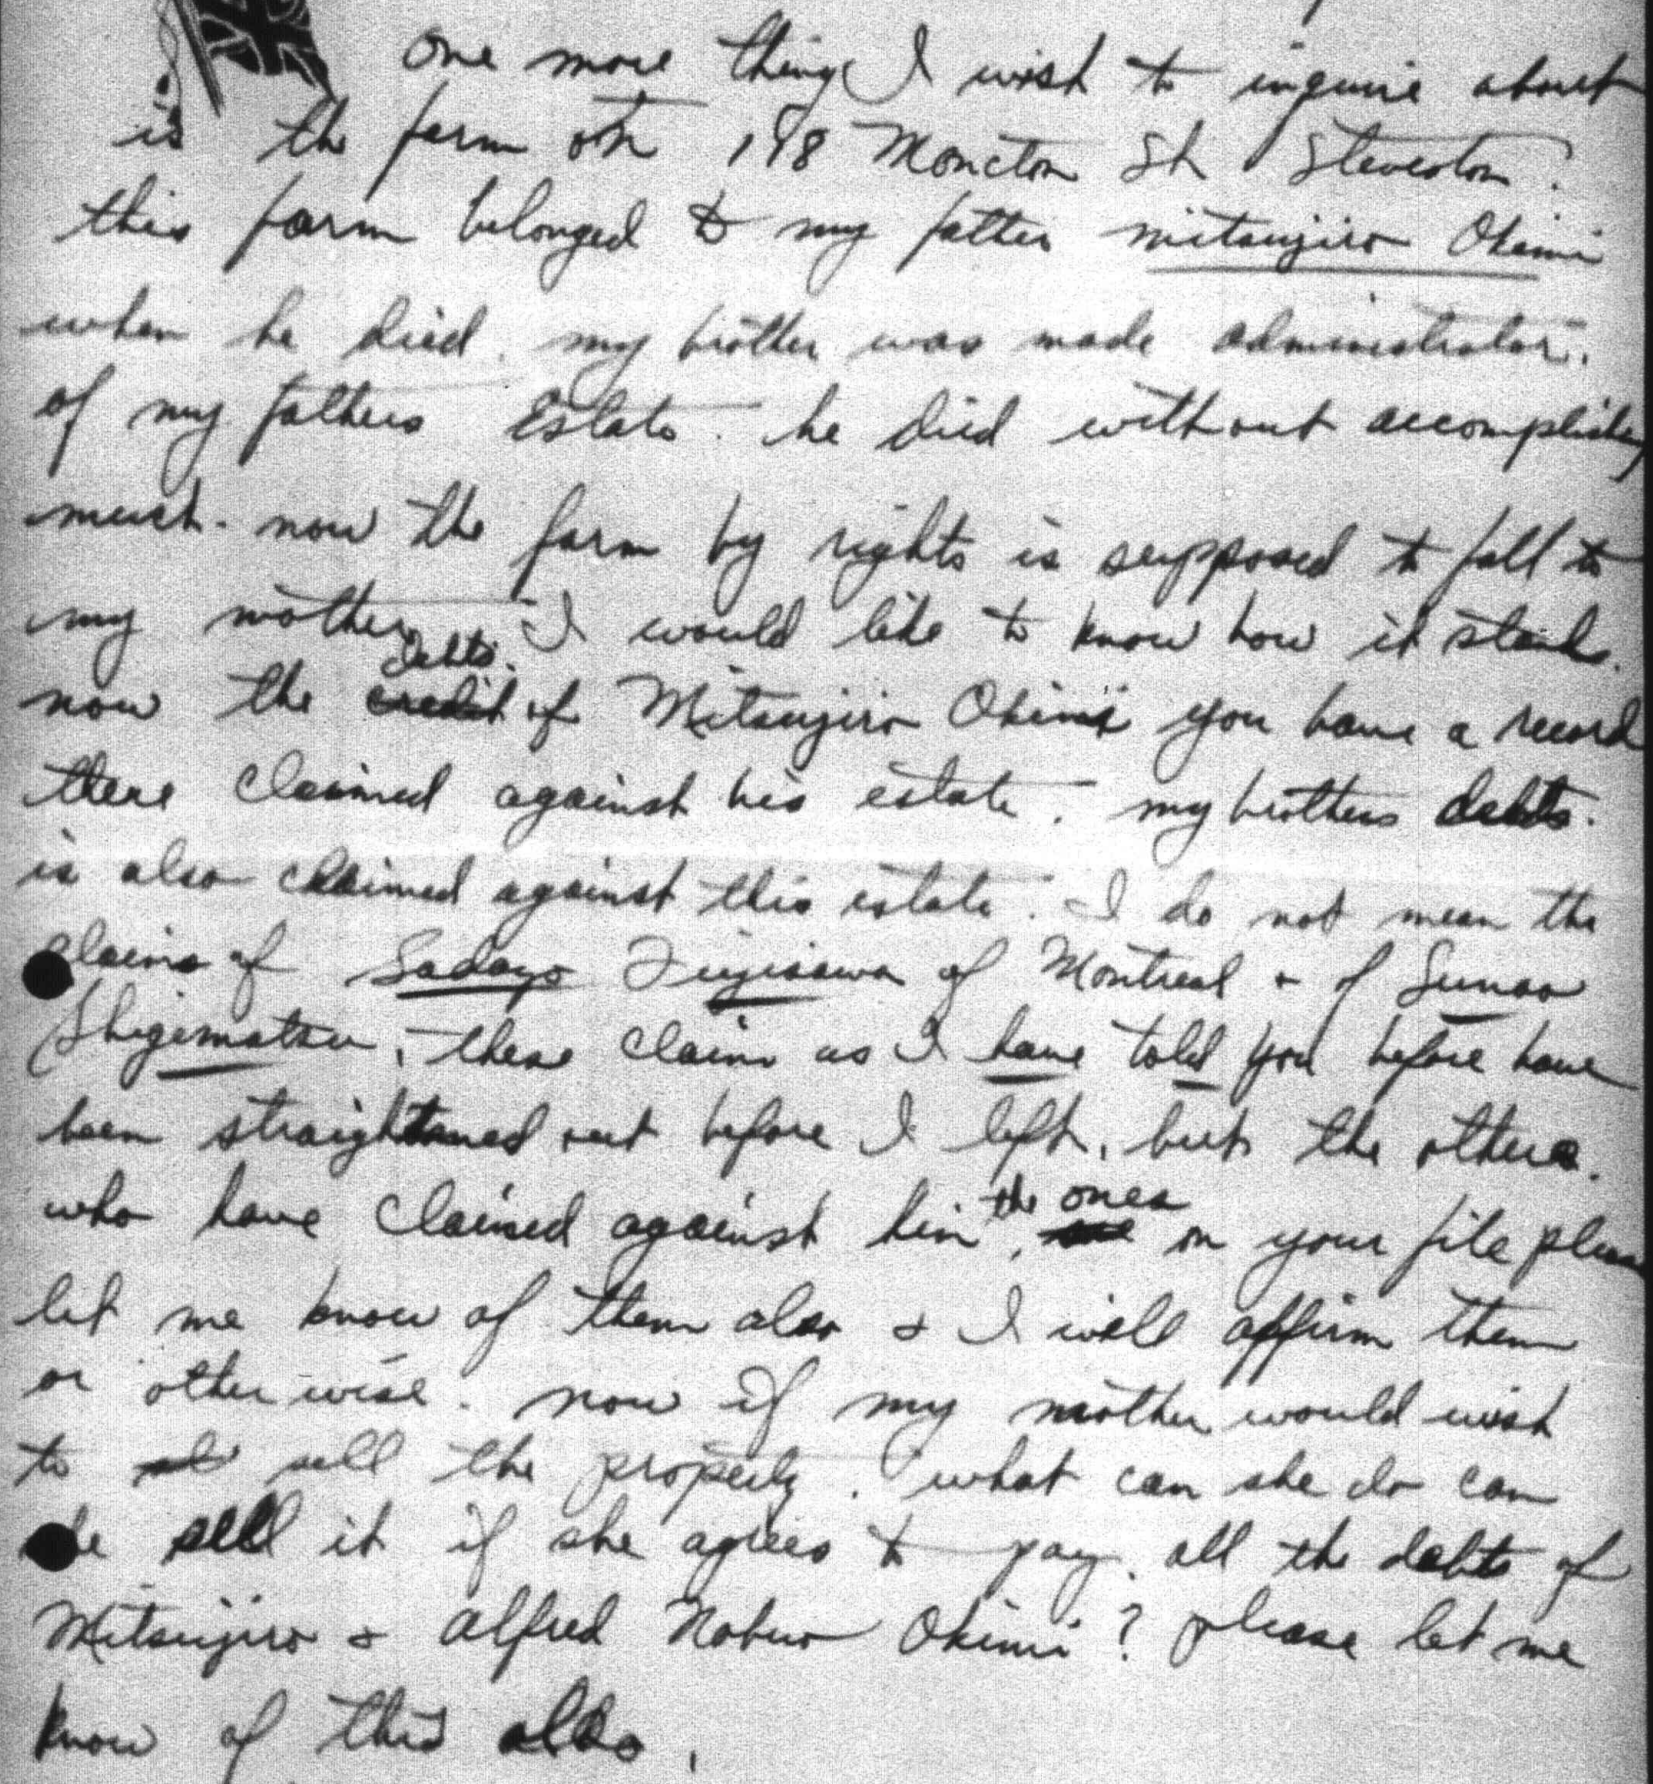 One more thing I wish to inquire about
is the farm on 198 Moncton St Steveston.
this farm belonged to my father Mitsujiro Okimi
when he died. my brother was made administrator.
of my fathers Estate. he died without accomplishing
much. now the farm by rights is supposed to fall to
my mother I would like to know how it stands.
now the debts. of Mitsujiro Okimi you have a record
there claimed against his estate. my brothers debts.
is also claimed against this estate. I do not mean the
claims of Sadayo Fujisawa of Montreal & of Sunao
Shigematsu, these claims as I have told you before have
been straightened out before I left, but the others.
who have claimed against him, the ones on your file please
let me know of them also & I will affirm them
or otherwise. now if my mother would wish
to sell the property. what can she do can
sell it if she agrees to pay. all the debts of
Mitsujiro & Alfred Nobuo Okimi? please let me
know of this also.